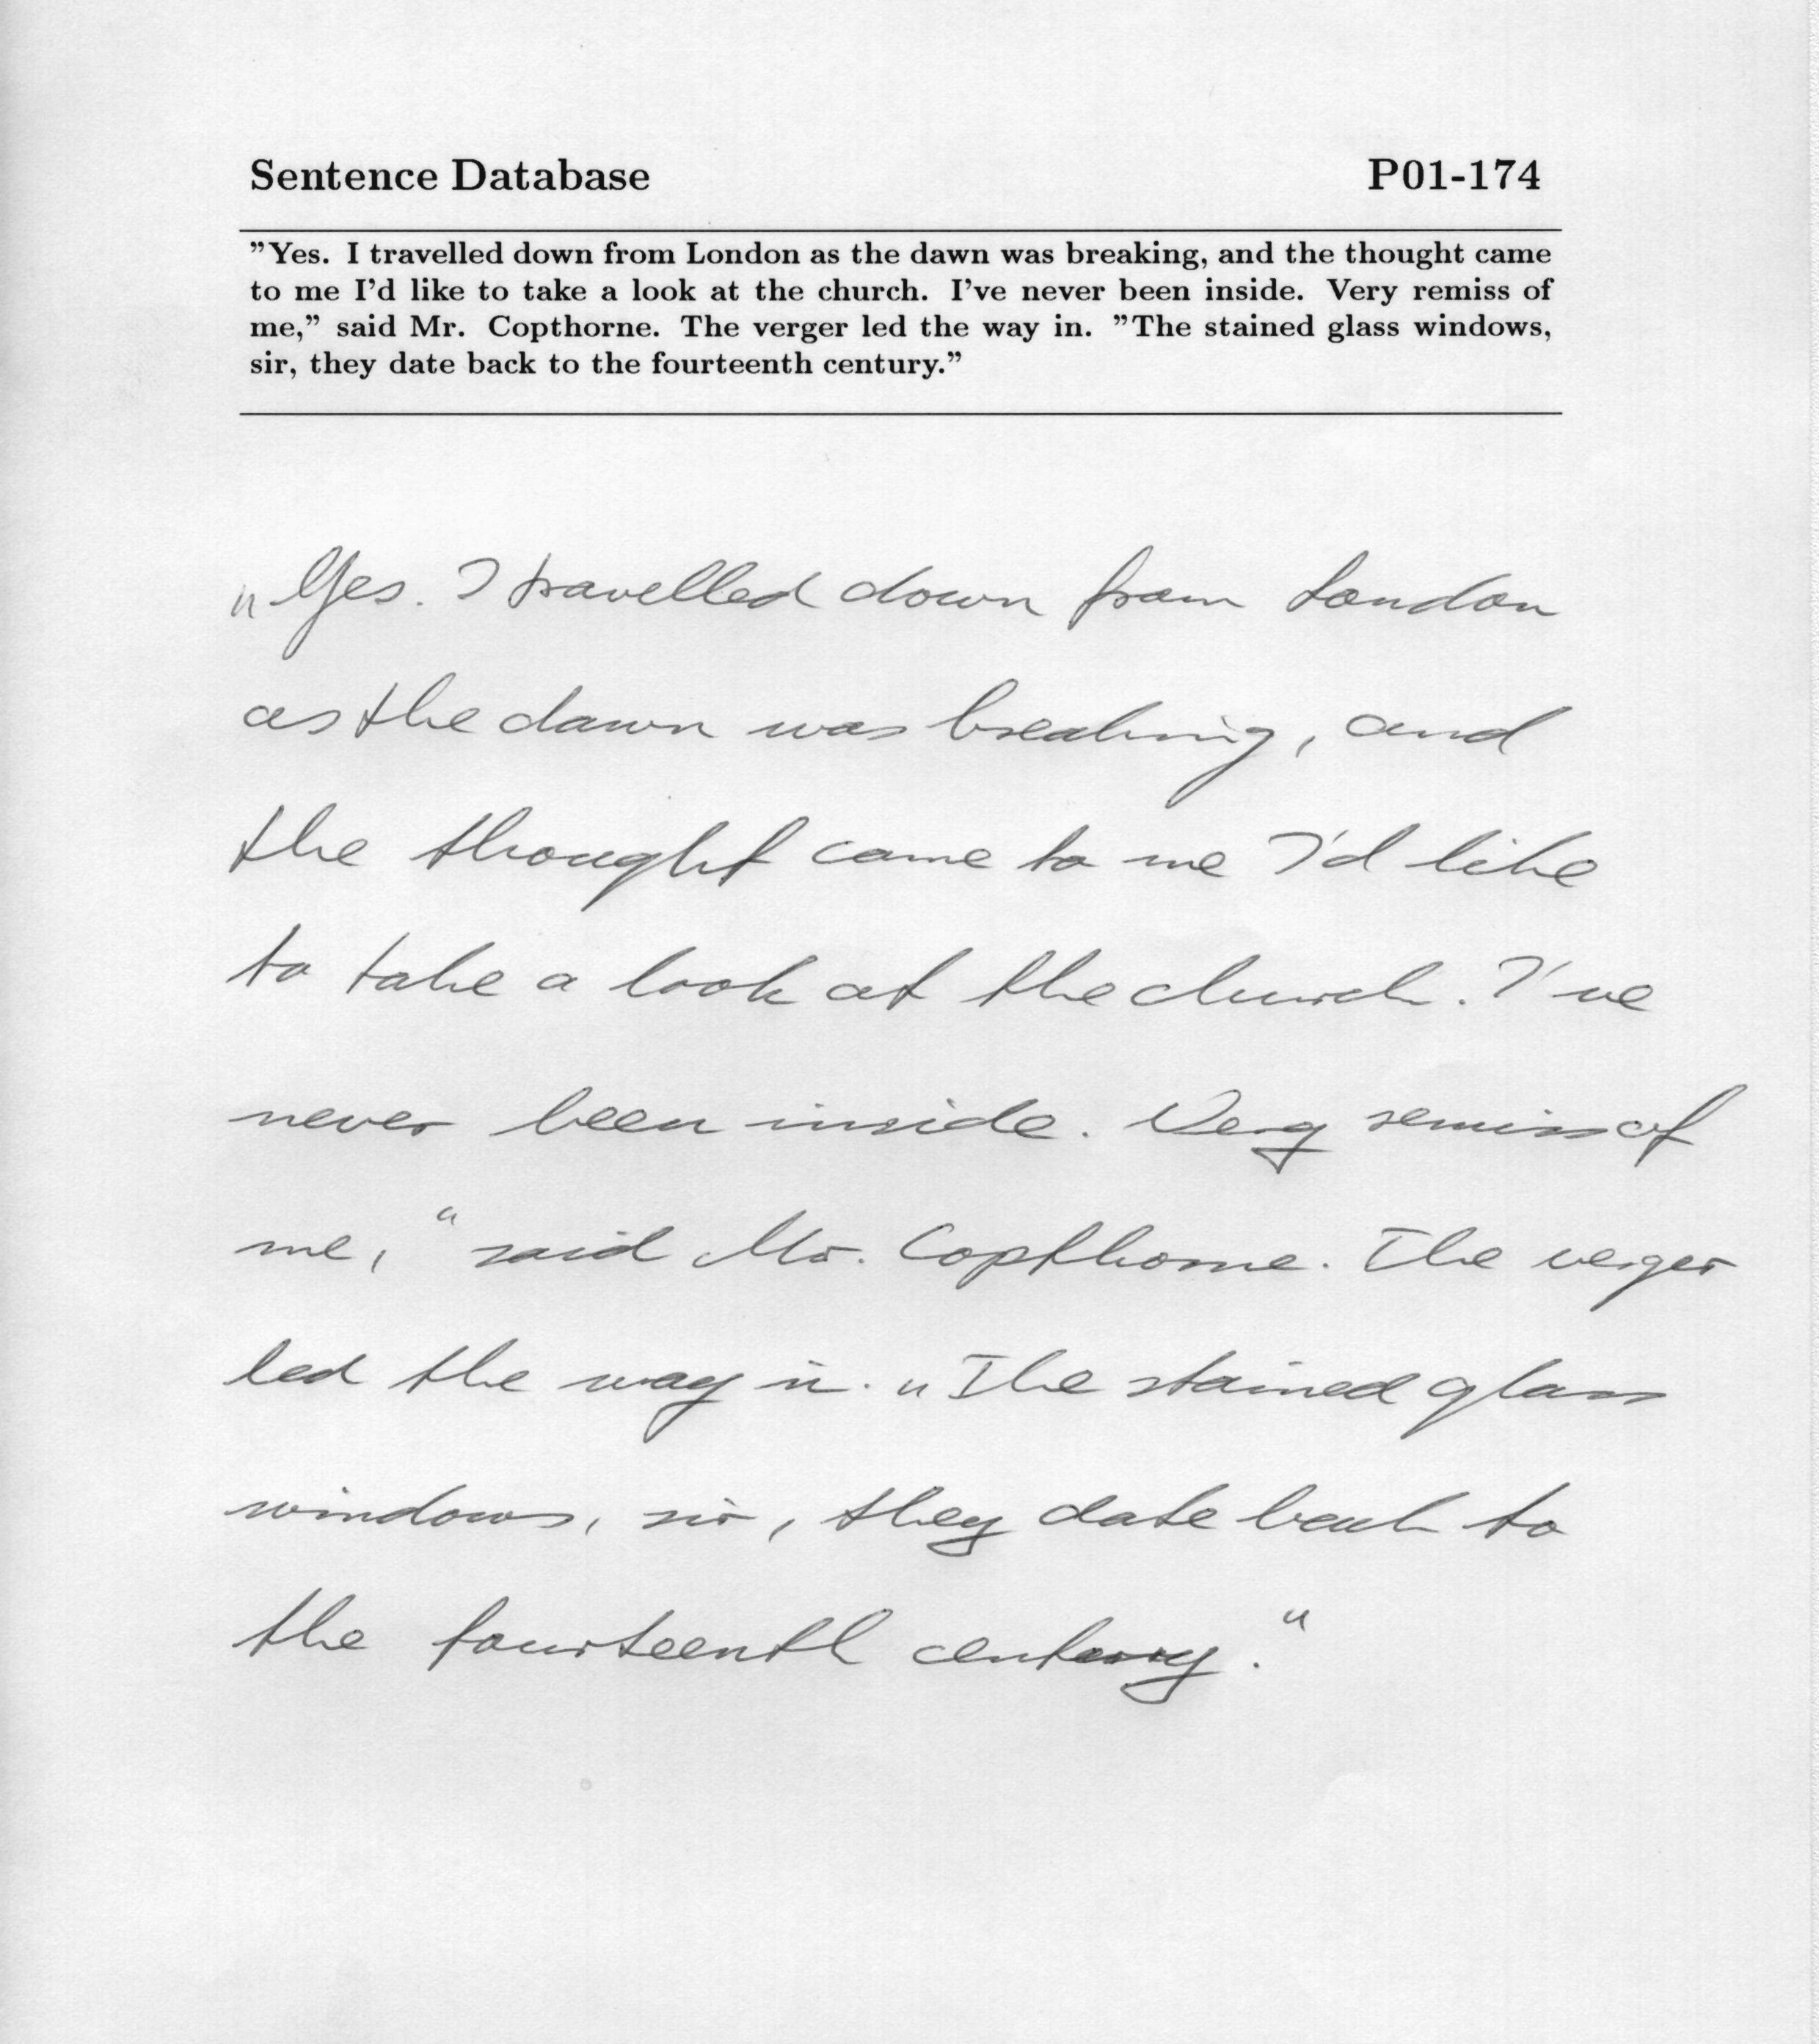 Sentence Database P01-174
”Yes. I travelled down from London as the dawn was breaking, and the thought came
to me I’d like to take a look at the church. I’ve never been inside. Very remiss of
me,” said Mr. Copthorne. The verger led the way in. ”The stained glass windows,
sir, they date back to the fourteenth century.”
„Yes. I travelled down from London
as the dawn was breaking, and
the thought came to me I'd like
to take a look at the church. I've
never been inside. Very remiss of
me,“ said Mr. Copthorne. The verger
led the way in. „The stained glass
windows, sir, they date back to
the fourteenth century.“